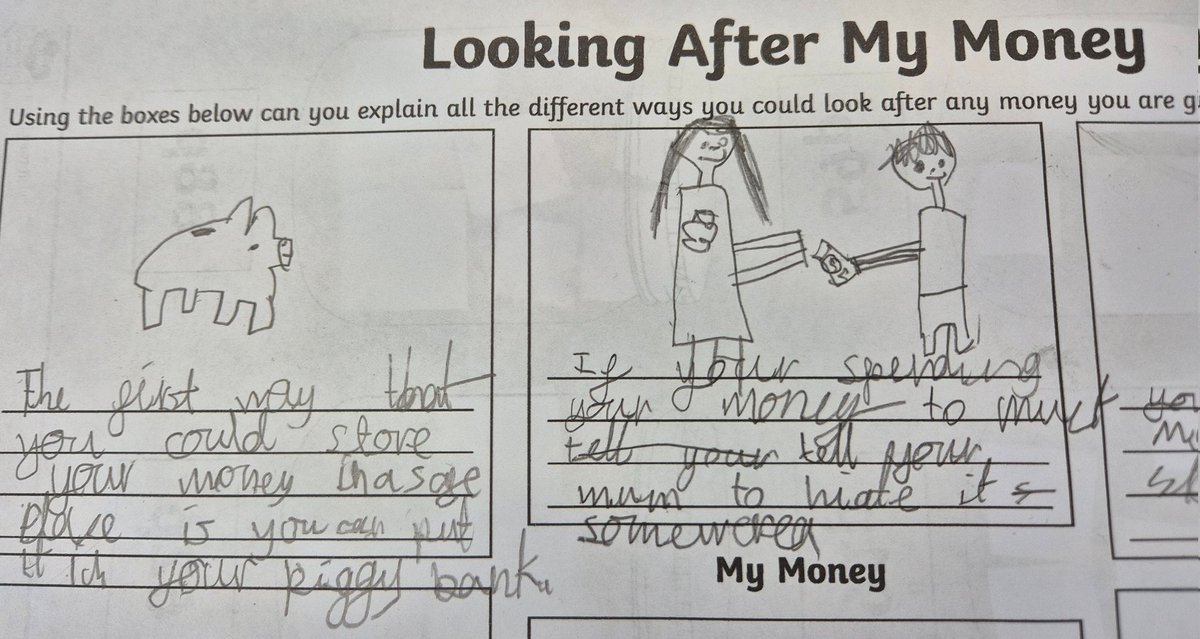 Looking After My Money
Using the boxes below can you explain all the different ways you could look after any money you are g
The first way that
you could store
your money
place is you can put
it your piggy bank.
If your spending
your money to much
tell your tell your
mum to hiate it
somewerea
you
My Money